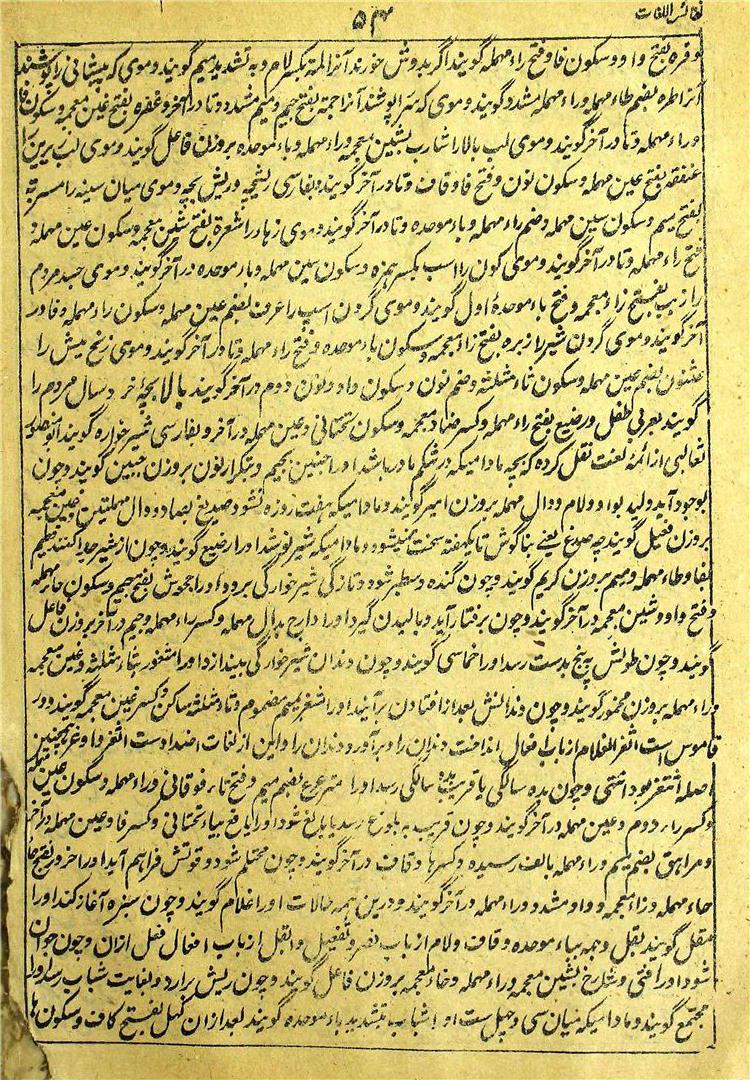 نفائس اللغات
۵۳
وفره بفتح واو وسکون فا وفتح راء مهمله گویند اگر بدوش خورند آنرا لمة بکسر لام وبه تشدید میم گویند وموی که پیشانی را پوشند
آنرا طره بضم طاء مهمله وراء مهمله مشدد گویند وموی که سر را پوشند آنرا جمة بفتح جیم ومیم مشدد وتا در آخر وغفره بفتح غین معجمه وسکون فا
وراء مهمله وتا در آخر گویند وموی لب بالا را شارب بشین معجمه وراء مهمله وباء موحده بروزن فاعل گویند وموی لب زیرین را
عنفقه بفتح عین مهمله وسکون نون وفتح فا وقاف وتا در آخر گویند وبفارسی ریش بچه وموی میان سینه را مسربة
بفتح میم وسکون سین مهمله وضم راء مهمله وباء موحده وتا در آخر گویند وموی زهار را شعرة بفتح شین معجمه وسکون عین مهمله و
فتح راء مهمله وتا در آخر گویند وموی کون را اسب بکسر همزه وسکون سین مهمله وباء موحده در آخر گویند وموی جسد مردم
را زبب بفتح زاء معجمه وفتح باء موحده اول گویند وموی گردن اسپ را عرف بضم عین مهمله وسکون راء مهمله وفا در
آخر گویند وموی گردن شیر را زبره بفتح زاء معجمه وسکون باء موحده وفتح راء مهمله وتا در آخر گویند وموی زنخ میش را
عثنون بضم عین مهمله وسکون ثاء مثلثه وضم نون وسکون واو ونون دوم در آخر گویند بالا بچۀ خرد سال مردم را
گویند بعربی طفل ورضیع بفتح راء مهمله وکسر ضاد معجمه وسکون تحتانی وعین مهمله در آخر وبفارسی شیر خواره گویند
ثعالبی از ائمه لغت نقل کرده که بچه مادامیکه در شکم مادر باشد او را جنین بجیم وتکرار نون بروزن جبین گویند وچون
بوجود آید ولید بواو ولام ودال مهمله بروزن امیر گویند ومادامیکه هفت روزه نشود صدیغ بصاد ودال مهملتین وغین معجمه
بروزن فعیل گویند چه صدغ یعنی بناگوش تا یکهفته سخت نمیشود ومادامیکه شیر نوشد او را رضیع گویند وچون از شیر جدا کنند فطیم
بفا وطاء مهمله ومیم بروزن کریم گویند وچون گنده وسطبر شود وتازگی شیر خوارگی برود او را جحوش بفتح جیم وسکون حاء مهمله
وفتح واو وشین معجمه در آخر گویند وچون برفتار آید وبالیدن گیرد او را دارج بدال مهمله وکسر راء مهمله وجیم در آخر بروزن فاعل
گویند وچون طولش به پنج بدست رسد او را خماسی گویند وچون دندان شیر خوارگی بیندازد او را مثغور بثاء مثلثه وغین معجمه
وراء مهمله بروزن مخمور گویند وچون دندانش بعد از افتادن برآیند او را مثغر بمیم مضموم وثاء مثلثه ساکن وکسر غین معجمه گویند ودر
قاموس است اثغر الغلام از باب افعال انداخت دندان را وبرآورد دندان را واین از لغات اضداد است
اصله اثتغر بود انتهی وچون بده سالگی یا قریب بده سالگی رسد او را مترعرع بضم میم وفتح تاء فوقانی وراء مهمله وسکون عین مهمله
وکسر راء دوم وعین مهمله در آخر گویند وچون قریب به بلوغ رسد یا بالغ شود او را یافع بیاء تحتانی وکسر فا وعین مهمله در آخر
ومراهق بضم میم وراء مهمله بالف رسیده وکسر ها وقاف در آخر گویند وچون محتلم شود وقوتش فراهم آید او را حزور بفتح
حاء مهمله وزاء معجمه وواو مشدد وراء مهمله در آخر گویند ودرین همه حالات او را غلام گویند وچون سبزه آغاز کند او را
متقل گویند بقل وجهه بباء موحده وقاف ولام از باب نصر وتفعیل وابقل از باب افعال فعل ازان وچون جوان
شود او را فتی وشارخ بشین معجمه وراء مهمله وخاء معجمه بروزن فاعل گویند وچون ریش برآرد وبغایت شباب رسد او را
مجتمع گویند ومادامیکه میان سی وچهل ست او را شاب بتشدید باء موحده گویند بعد ازان کهل بفتح کاف وسکون ها